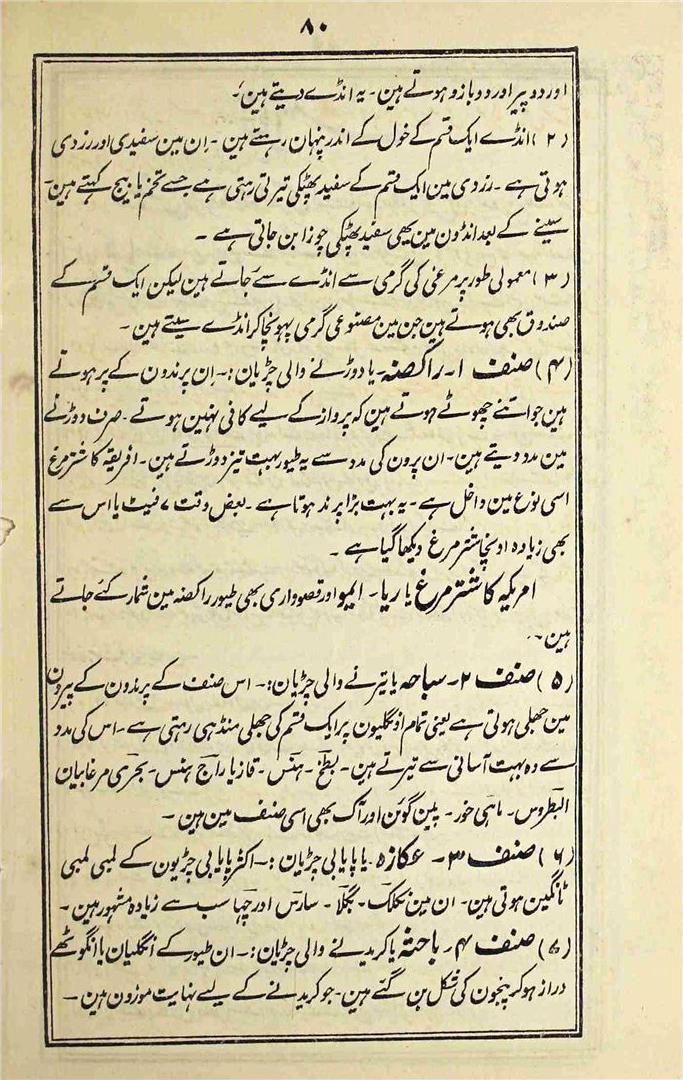 ۸۰
اور دو پیر اور دو بازو ہوتے ہین۔ یہ انڈے دیتے ہین۔
(۲) انڈے ایک قسم کے خول کے اندر پنہان رہتے ہین۔ اِن مین سفیدی اور زردی
ہوتی ہے۔ زردی مین ایک قسم کے سفید پھٹکی تیرتی رہتی ہے جسے تخم یا بیج کہتے ہین۔
سینے کے بعد انڈون مین یہی سفید پھٹکی چوزا بن جاتی ہے ۔
(۳) معمولی طور پر مرغی کی گرمی سے انڈے سے جاتے ہین لیکن ایک قسم کے
صندوق بھی ہوتے ہین جن مین مصنوعی گرمی پہونچا کر انڈے سیتے ہین۔
(۴) صنف ۱۔ راکضہ۔ یا دوڑنے والی چڑیان:۔ اِن پرندون کے پر ہوتے
ہین جو اتنے چھوٹے ہوتے ہین کہ پرواز کے لیے کافی نہین ہوتے۔ صرف دوڑنے
مین مدد دیتے ہین۔ ان پرون کی مدد سے یہ طیور بہت تیز دوڑتے ہین۔ افریقہ کا شترمرغ
اسی نوع مین داخل ہے۔ یہ بہت بڑا پرند ہوتا ہے۔ بعض وقت ۷ فیٹ یا اس سے
بھی زیادہ اونچا شترمرغ دیکھا گیا ہے ۔
امریکہ کا شترمرغ یا ریا۔ ایمو اور قصوواری بھی طیور راکضہ مین شمار کئے جاتے
ہین۔
(۵) صنف ۲۔ سباحہ یا تیرنے والی چڑیان:۔ اس صنف کے پرندون کے پیرون
مین جھلی ہوتی ہے یعنی تمام اونگلیون پر ایک قسم کی جھلی منڈہی رہتی ہے۔ اس کی مدد
سے وہ بہت آسانی سے تیرتے ہین۔ بطخ۔ ہنس۔ قاز یا راج ہنس۔ بحری مرغابیان
البطروس۔ ماہی خور۔ پین گوئن اور آک بھی اسی صنف مین ہین۔
(۶) صنف ۳۔ عکازہ۔ یا پایابی چڑیان:۔ اکثر پایابی چڑیون کے لمبی لمبی
ٹانگین ہوتی ہین۔ ان مین لکلک۔ بگلا۔ سارس اور چہا سب سے زیادہ مشہور ہین۔
(۷) صنف ۴۔ باحثہ یا کریدنے والی چڑیان:۔ ان طیور کے اُنگلیان یا انگوٹھے
دراز ہوکر پنجون کی شکل بن گئے ہین۔ جو کریدنے کے لیے نہایت موزون ہین۔